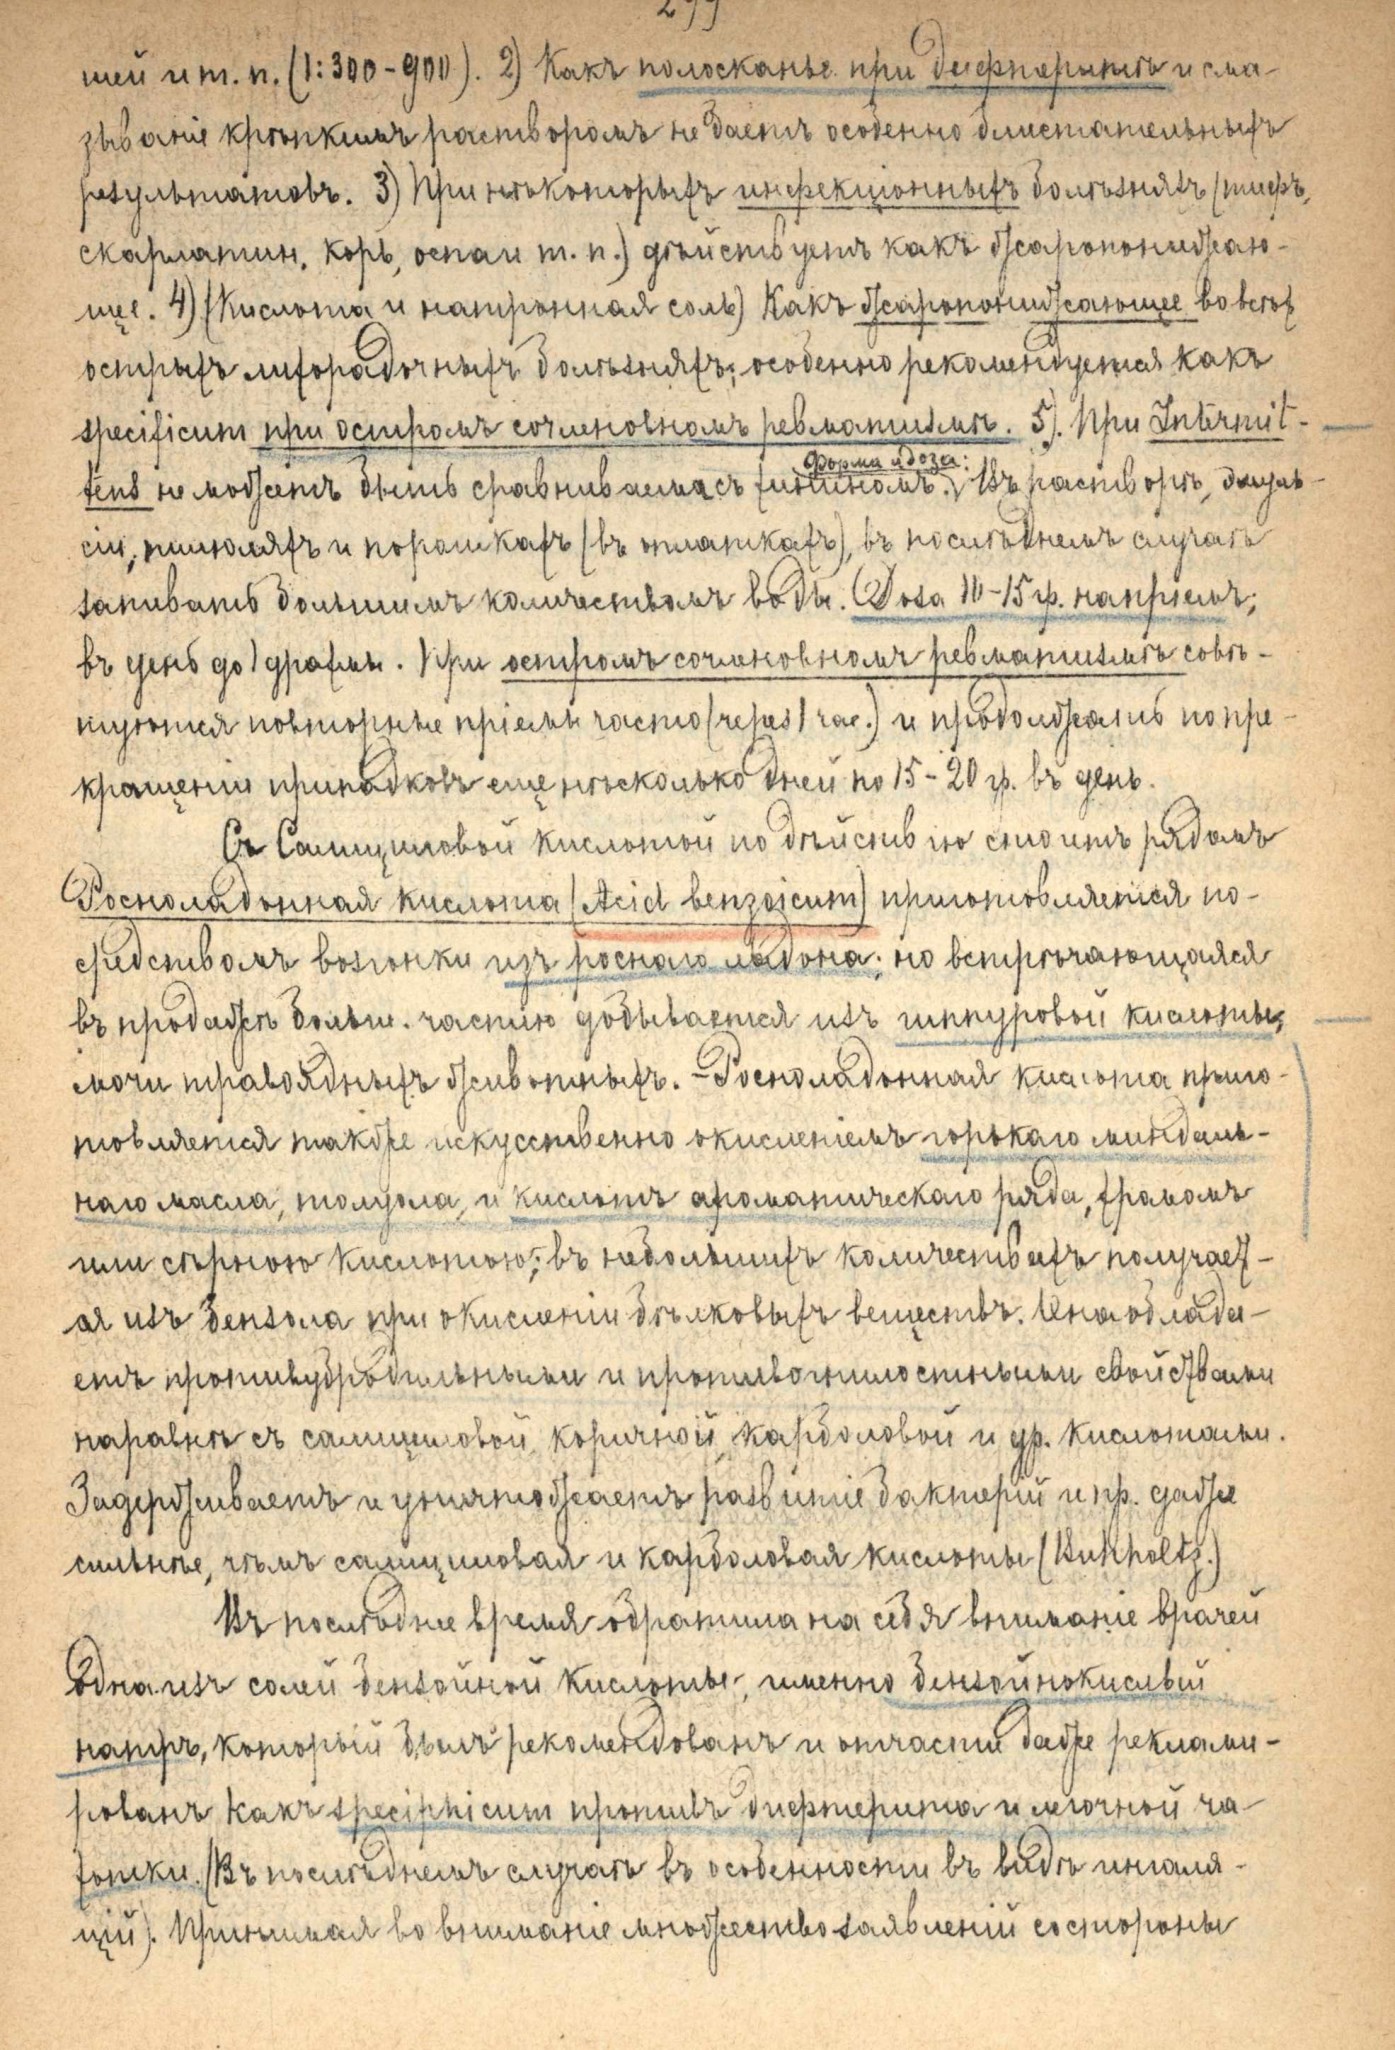 299
шей и т. п. (1:300-900). 2) Какъ полосканье при дифтеритѣ и сма-
зываніе крѣпкимъ растворомъ не даетъ особенно блистательныхъ
результатовъ. 3) При нѣкоторыхъ инфекціонныхъ болѣзняхъ (тифъ,
скарлатин., корь, оспа и т. п.) дѣйствуетъ какъ жаропонижаю-
щее. 4) (Кислота и натронная соль) Какъ жаропонижающее во всѣхъ
острыхъ лихорадочныхъ болѣзняхъ; особенно рекомендуется какъ
specificum при остромъ сочленовномъ ревматизмѣ. 5). При Intermit-
Форма и доза:
tens не можетъ быть сравниваема съ хининомъ. Въ растворѣ, эмуль-
сіи, пилюляхъ и порошкахъ (въ оплаткахъ), въ послѣднемъ случаѣ
запивать большимъ количествомъ воды. Dosa 10-15 гр. на пріемъ;
въ день до 1 драхмы. При остромъ сочленовномъ ревматизмѣ совѣ-
туются повторные пріемы часто (черезъ 1 час.) и продолжать по пре-
кращеніи припадковъ еще нѣсколько дней по 15-20 гр. въ день.
Съ Салициловой кислотой по дѣйствію стоитъ рядомъ
Росноладонная кислота (Acid benzoicum) приготовляется по-
средствомъ возгонки изъ роснаго ладона; но встрѣчающаяся
въ продажѣ больш. частію добывается изъ гиппуровой кислоты,
мочи травоядныхъ животныхъ. - Росноладонная кислота приго-
товляется также искусственно окисленіемъ горькаго миндаль-
наго масла, толуола, и кислотъ ароматическаго ряда, хромомъ
или сѣрною кислотою; въ небольшихъ количествахъ получает-
ся изъ бензола при окисленіи бѣлковыхъ веществъ. Она облада-
етъ противубродильными и противогнилостными свойствами
наравнѣ съ салициловой, коричной, карболовой и др. кислотами.
Задерживаетъ и уничтожаетъ развитіе бактерій и пр. даже
сильнѣе, чѣмъ салициловая и карболовая кислоты (Bukholtz.)
Въ послѣднее время обратила на себя вниманіе врачей
одна изъ солей бензойной кислоты, именно бензойнокислый
натръ, который былъ рекомендованъ и отчасти даже реклами-
рованъ какъ speciphicum противъ дифтерита и легочной ча-
хотки. (Въ послѣднемъ случаѣ въ особенности въ видѣ ингаля-
цій). Принимая во вниманіе множество заявленій со стороны